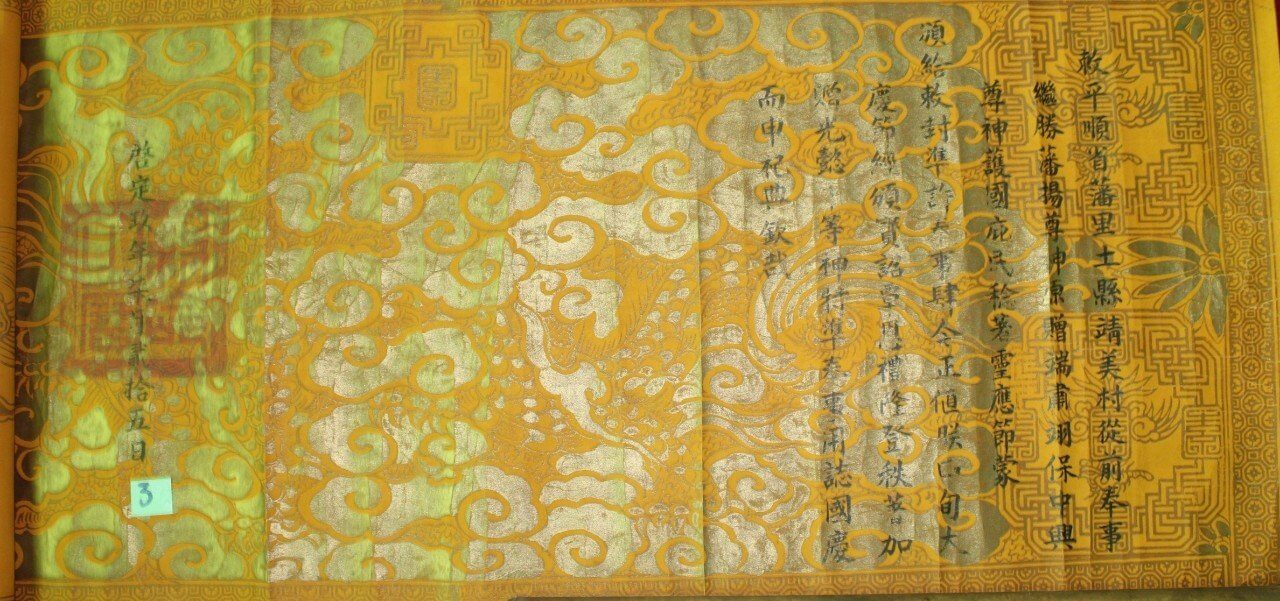 敕平順省藩里土縣靖美村從前奉事
繼勝藩揚尊神原贈端肅翊保中興
尊神護國庇民稔著靈應節蒙
頒給敕封準許奉事肆今正值朕四旬大
慶節經頒寶詔覃恩禮隆登秩著加
贈光懿 等神特準奉事用誌國慶
而申祀典欽哉
啓定玖年柒月貳拾五日
3